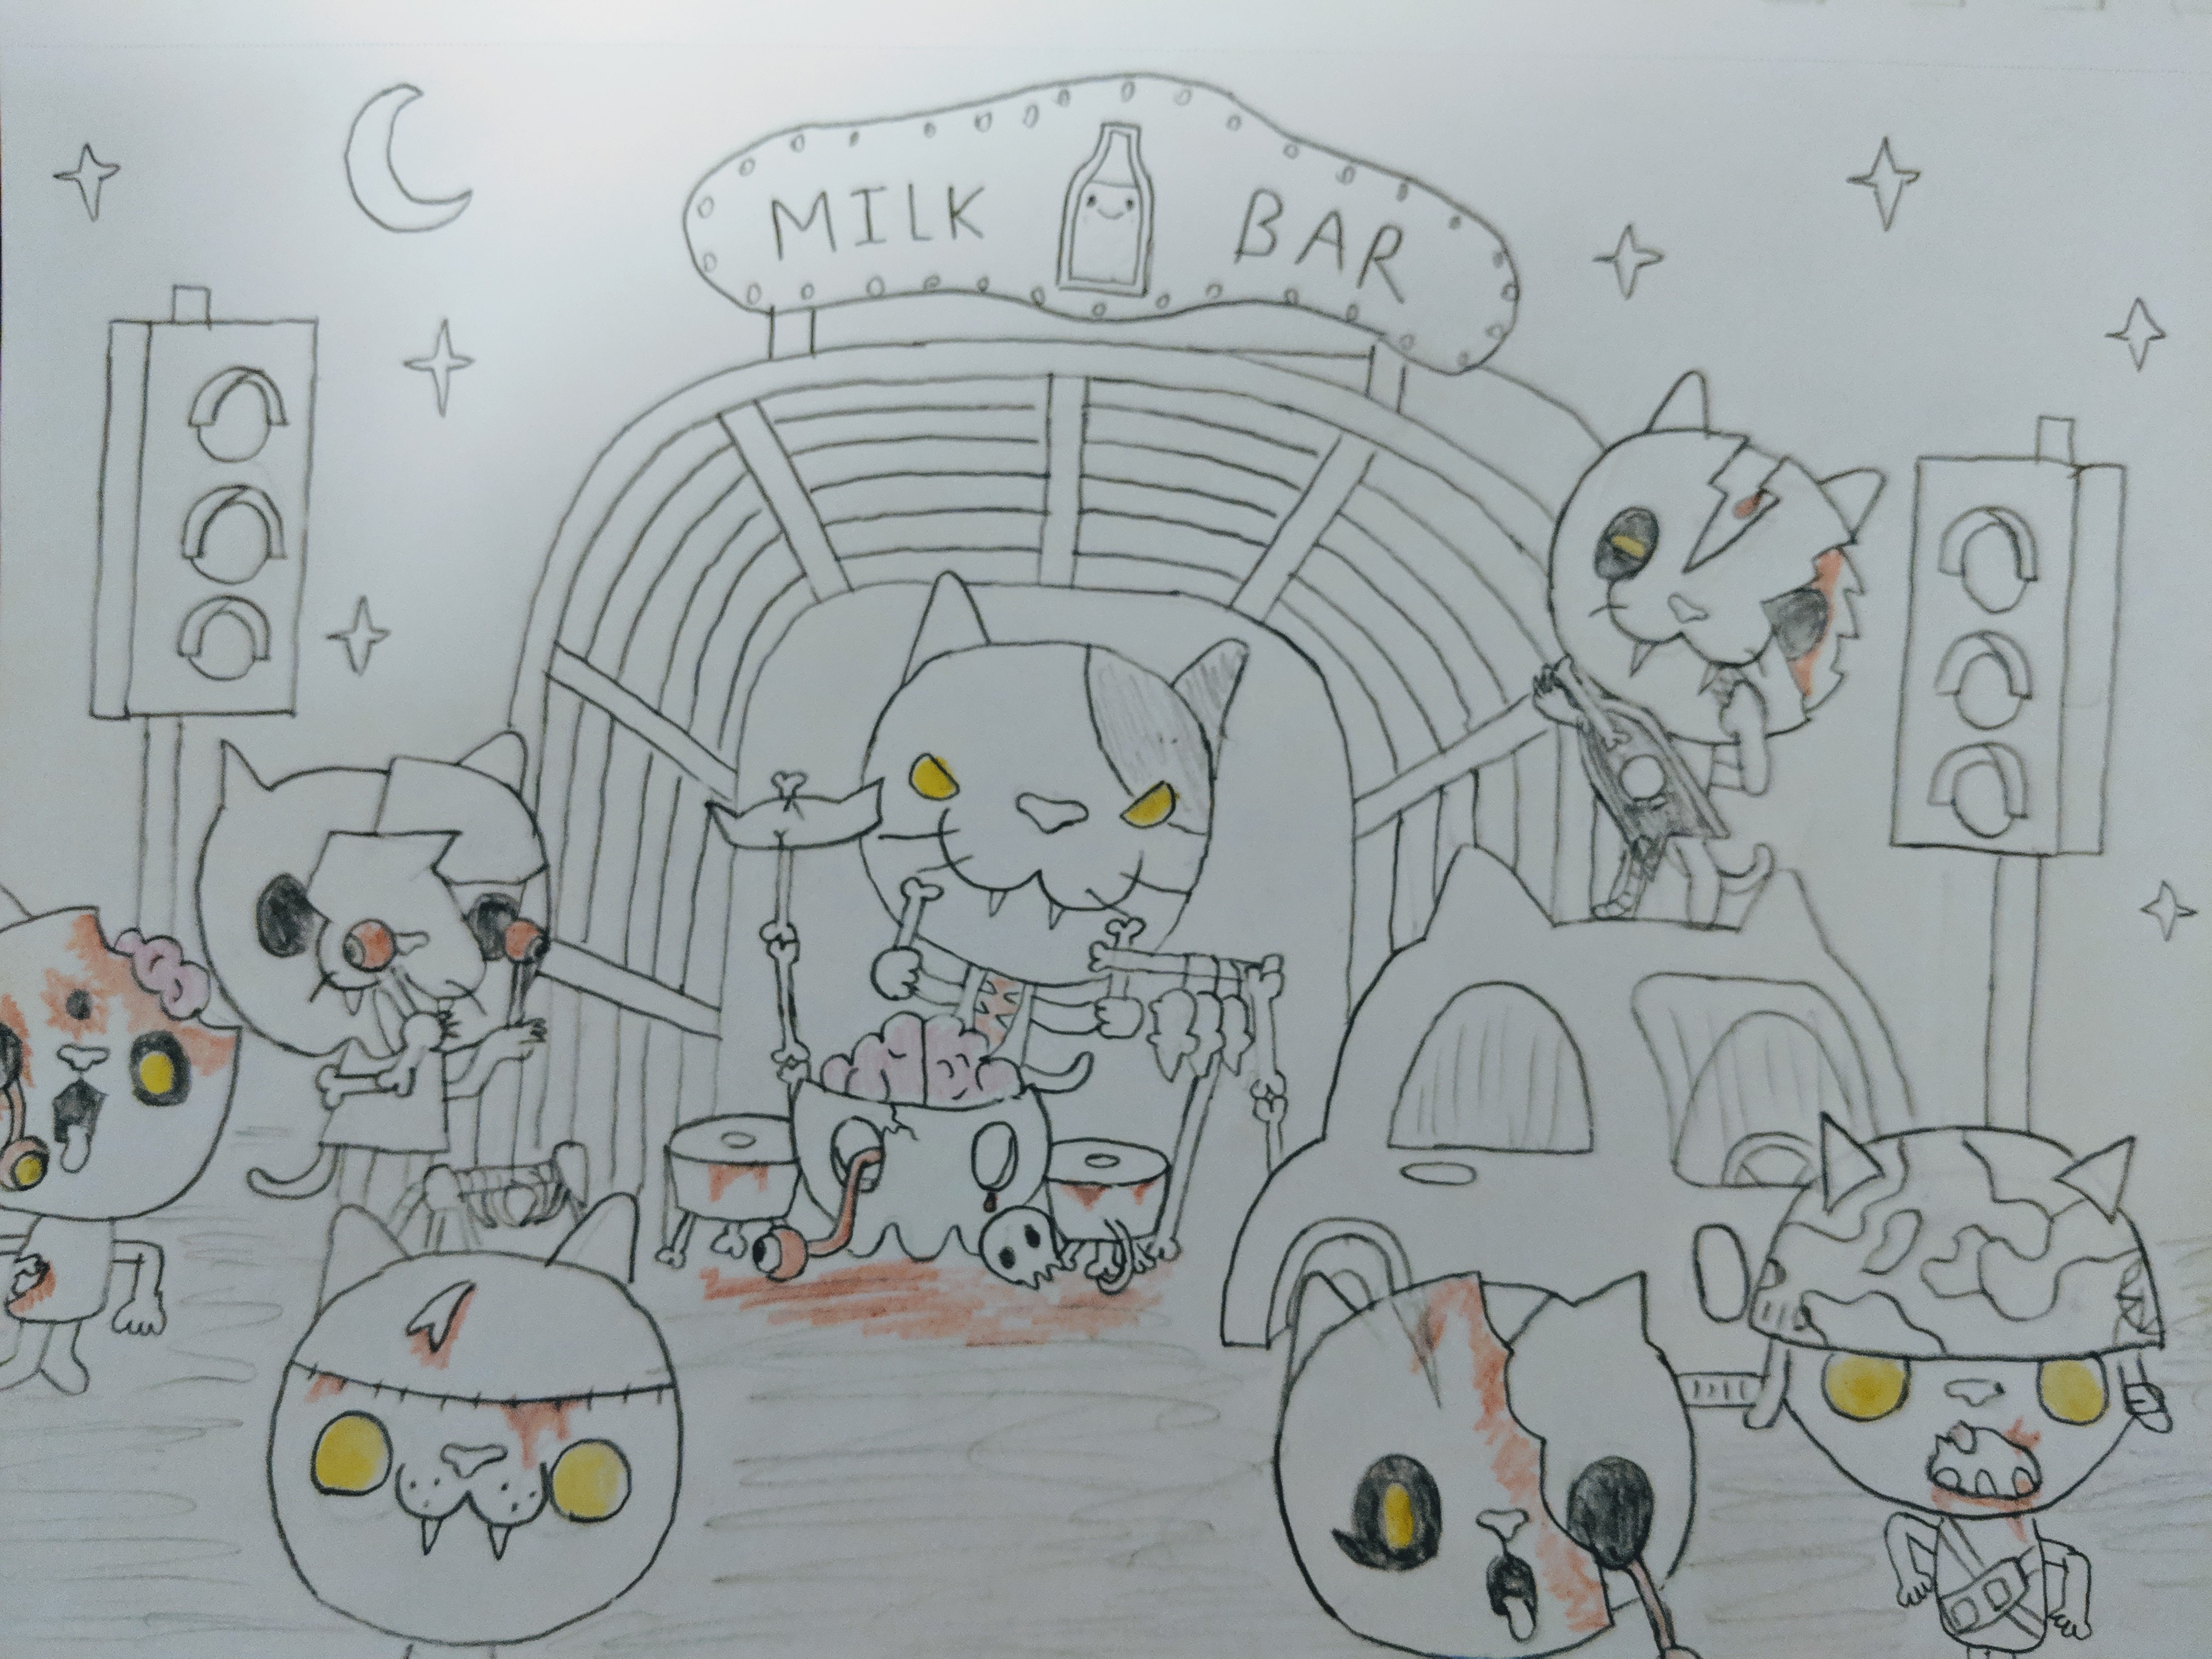 MILK BAR